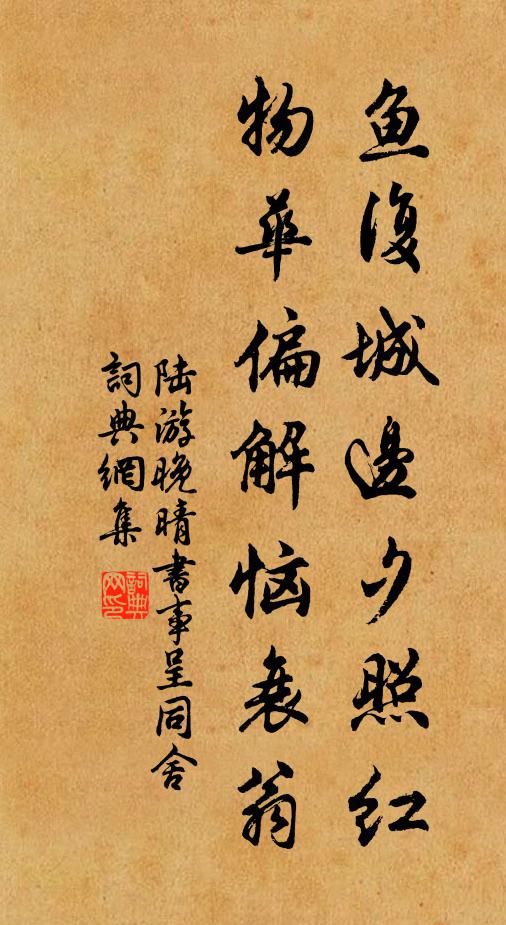 鱼復城邊夕照红
物華偏解恼衰翁
陆游晚晴書事呈同舍
詞典網集
詞典网印